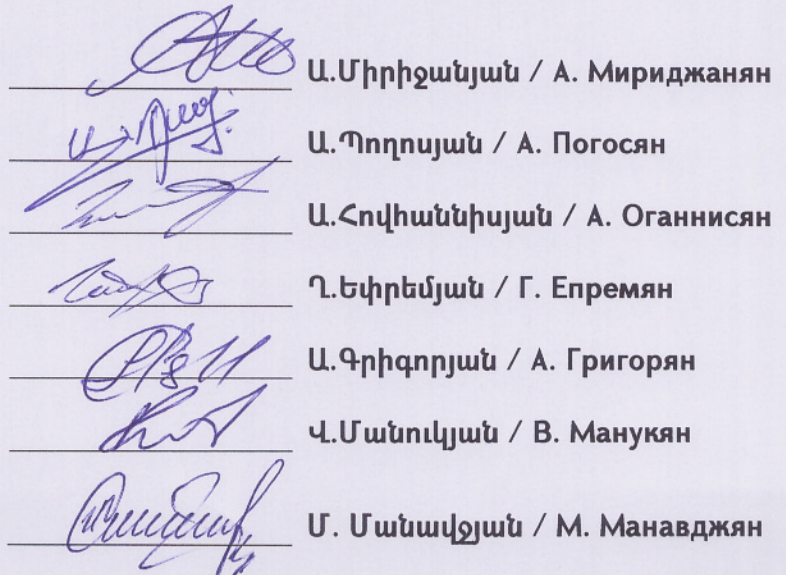 Ա.Միրիջանյան / А. Мириджанян
Ա.Պողոսյան / А. Погосян
Ա.Հովհաննիսյան / А. Оганнисян
Ղ.Եփրեմյան / Г. Епремян
Ա.Գրիգորյան / А. Григорян
Վ.Մանուկյան / В. Манукян
Մ. Մանավջյան / М. Манавджян